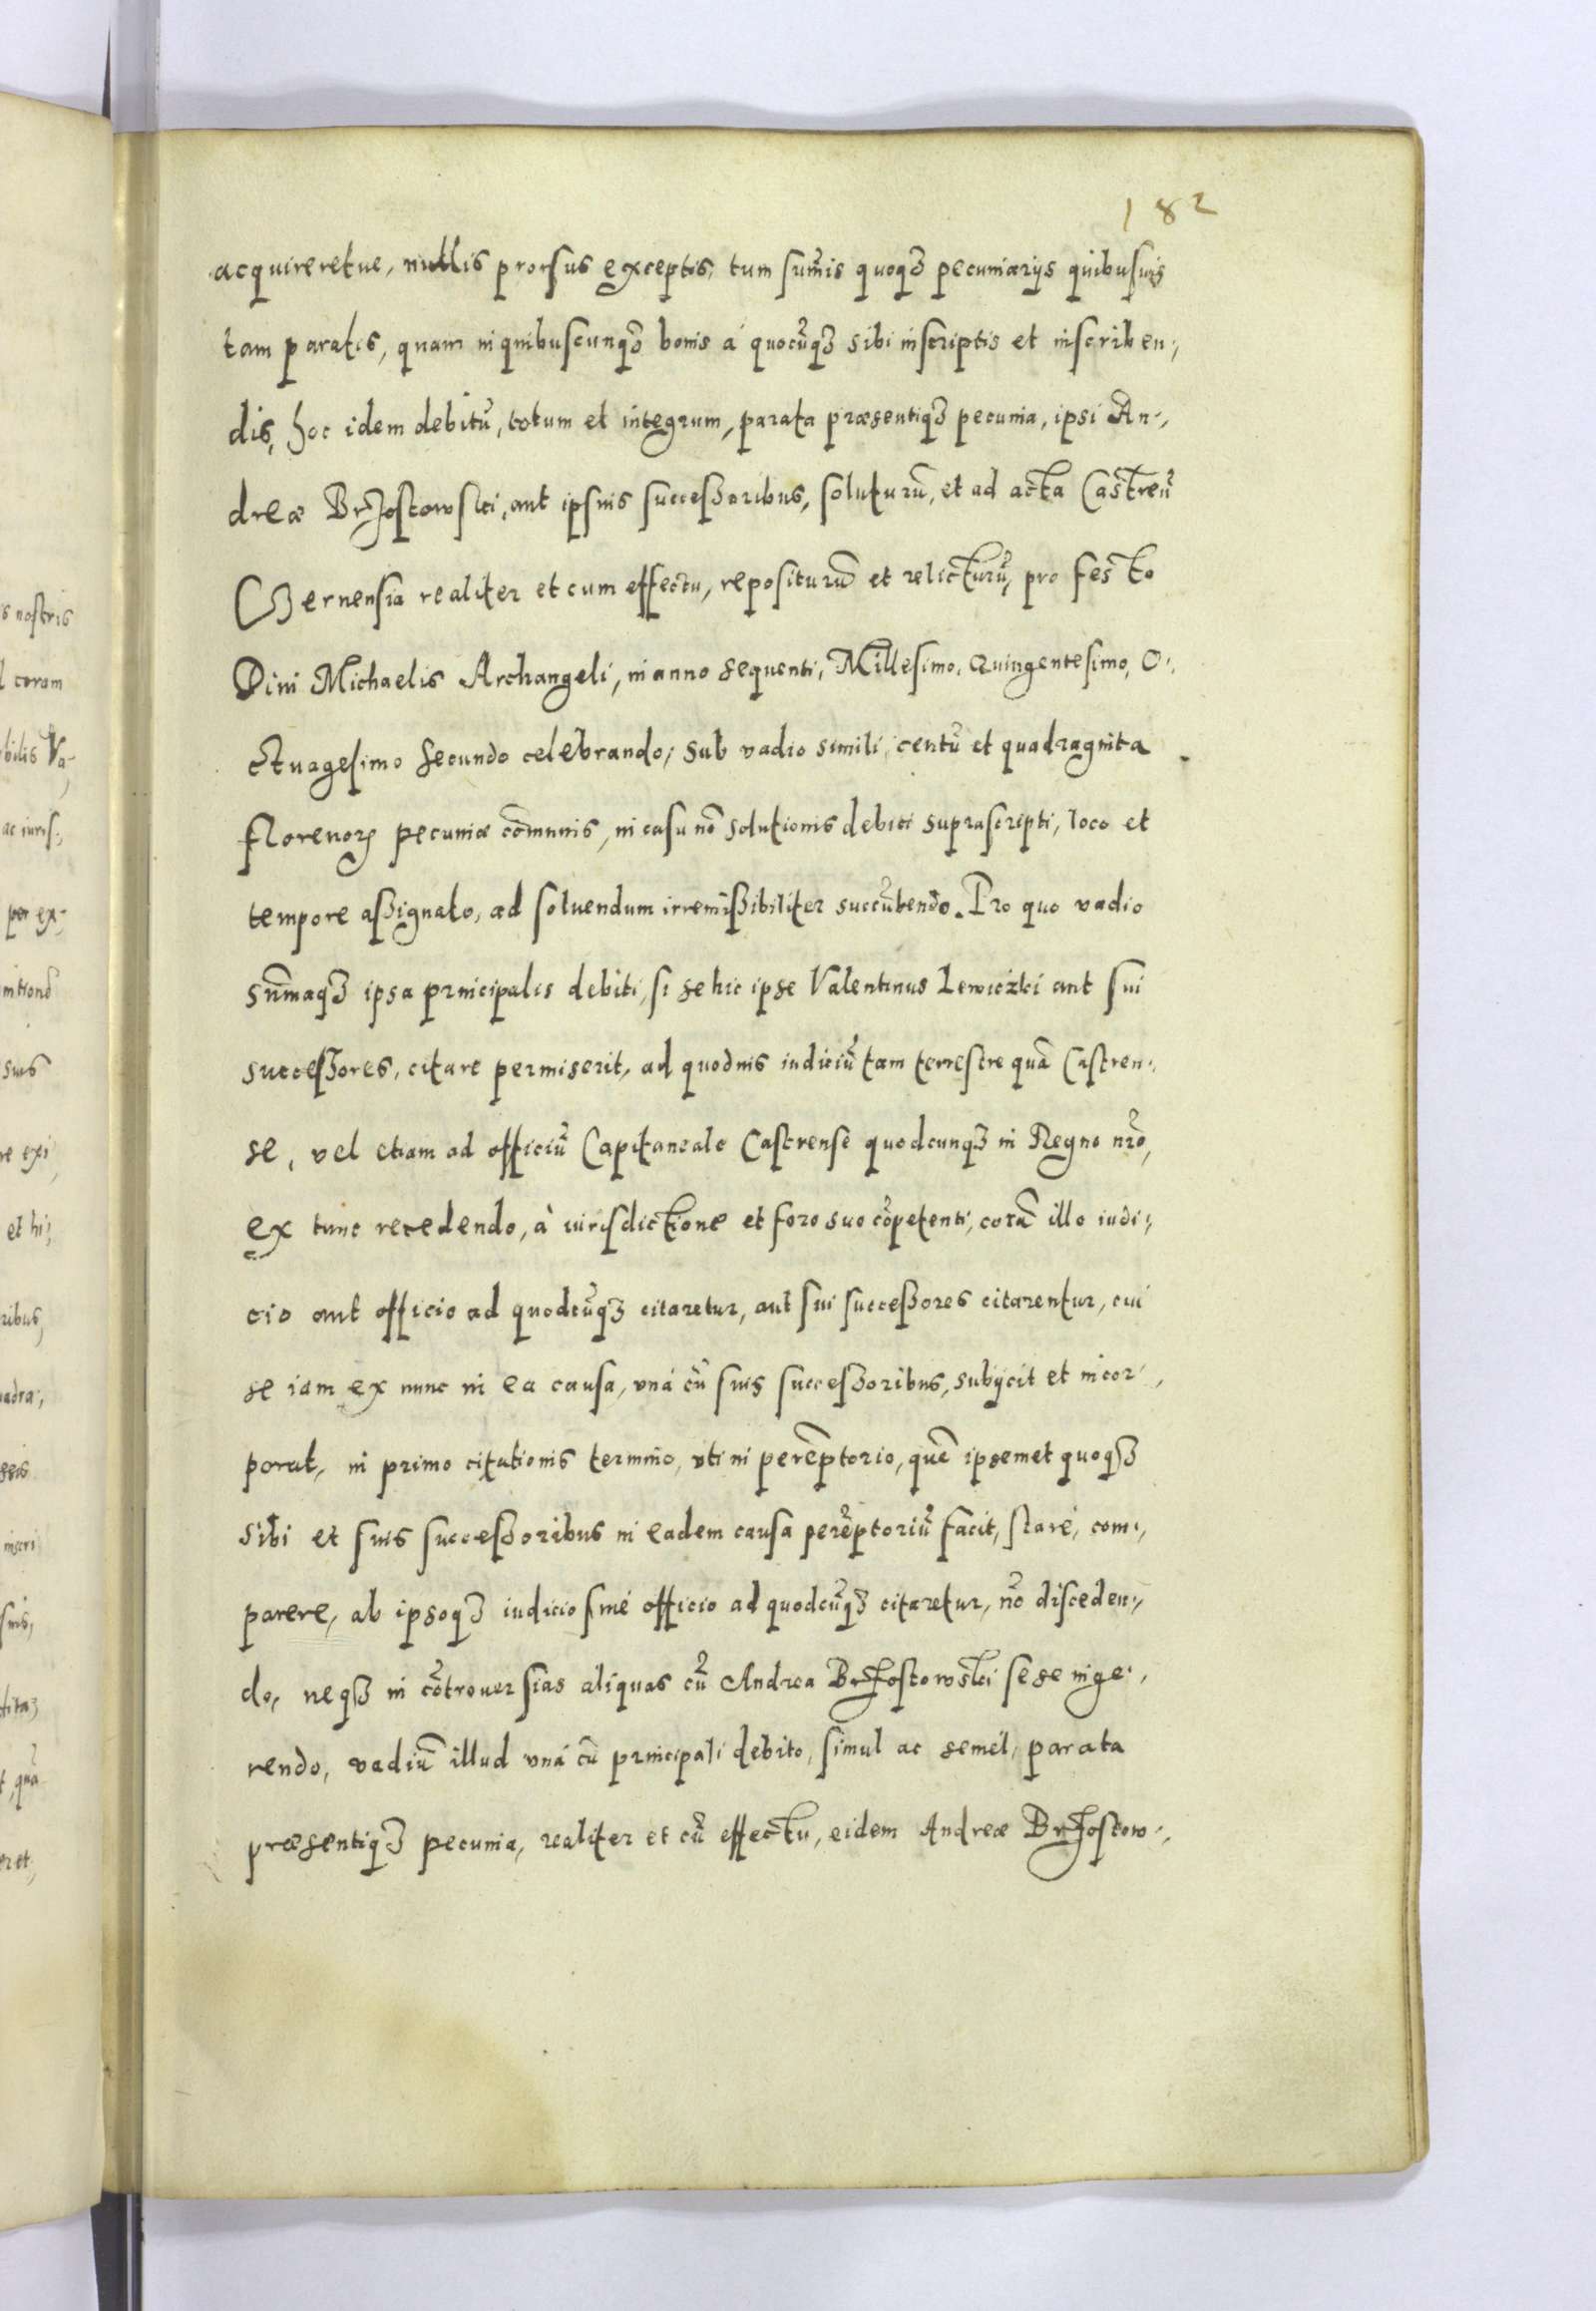 182
acquireretue, nullis prorsus exceptis, tum sum̃is quoqȝ pecuniarijs quibusuis
tam paratis, quam in quibuscunqȝ bonis á quocũqȝ sibi inscriptis et inscriben,
dis, hoc idem debitũ, totum et integrum, parata præsentiqȝ pecunia, ipsi An,
dreæ Brzostowski, aut ipsuis successoribus, soluturũ, et ad acta Castreñ
Czernensia realiter et cum effectu, repositurũ et relicturũ, pro festo
Diui Michaelis Archangeli, in anno sequenti, Millesimo, Quingentesimo, O,
ctuagesimo secundo celebrando, sub vadio simili, centũ et quadraginta
florenoꝝ pecuniæ com̃unis, in casu nõ solutionis debiti suprascripti, loco et
tempore assignato, ad soluendum irremissibiliter succũbendo. Pro quo vadio
sum̃aqȝ ipsa principalis debiti, si se hic ipse Valentinus Lewiczki aut sui
successores, citare permiserit, ad quoduis iudiciũ tam terrestre quã Castren,
se, vel etiam ad officiũ Capitaneale Castrense quodcunqȝ in Regno nr̃o,
ex tunc recedendo, à iurisdictione et foro suo cõpetenti, corã illo iudi,
cio aut officio ad quodcũqȝ citaretur, aut sui successores citarentur, cui
se iam ex nunc in ea causa, vná cũ suis successoribus, subijcit et incor,
porat, in primo citationis termino, vti in perẽptorio, quẽ ipsemet quoqȝ
sibi et suis successoribus in eadem causa perẽptoriũ facit, stare, com,
parere, ab ipsoqȝ iudicio siué officio ad quodcũqȝ citaretur, nõ disceden,
do, neqȝ in cõtrouersias aliquas cũ Andrea Brzostowski sese inge,
rendo, vadiũ illud vná cũ principali debito, simul ac semel, parata
præsentiqȝ pecunia, realiter et cũ effectu, eidem Andreæ Brzostow,